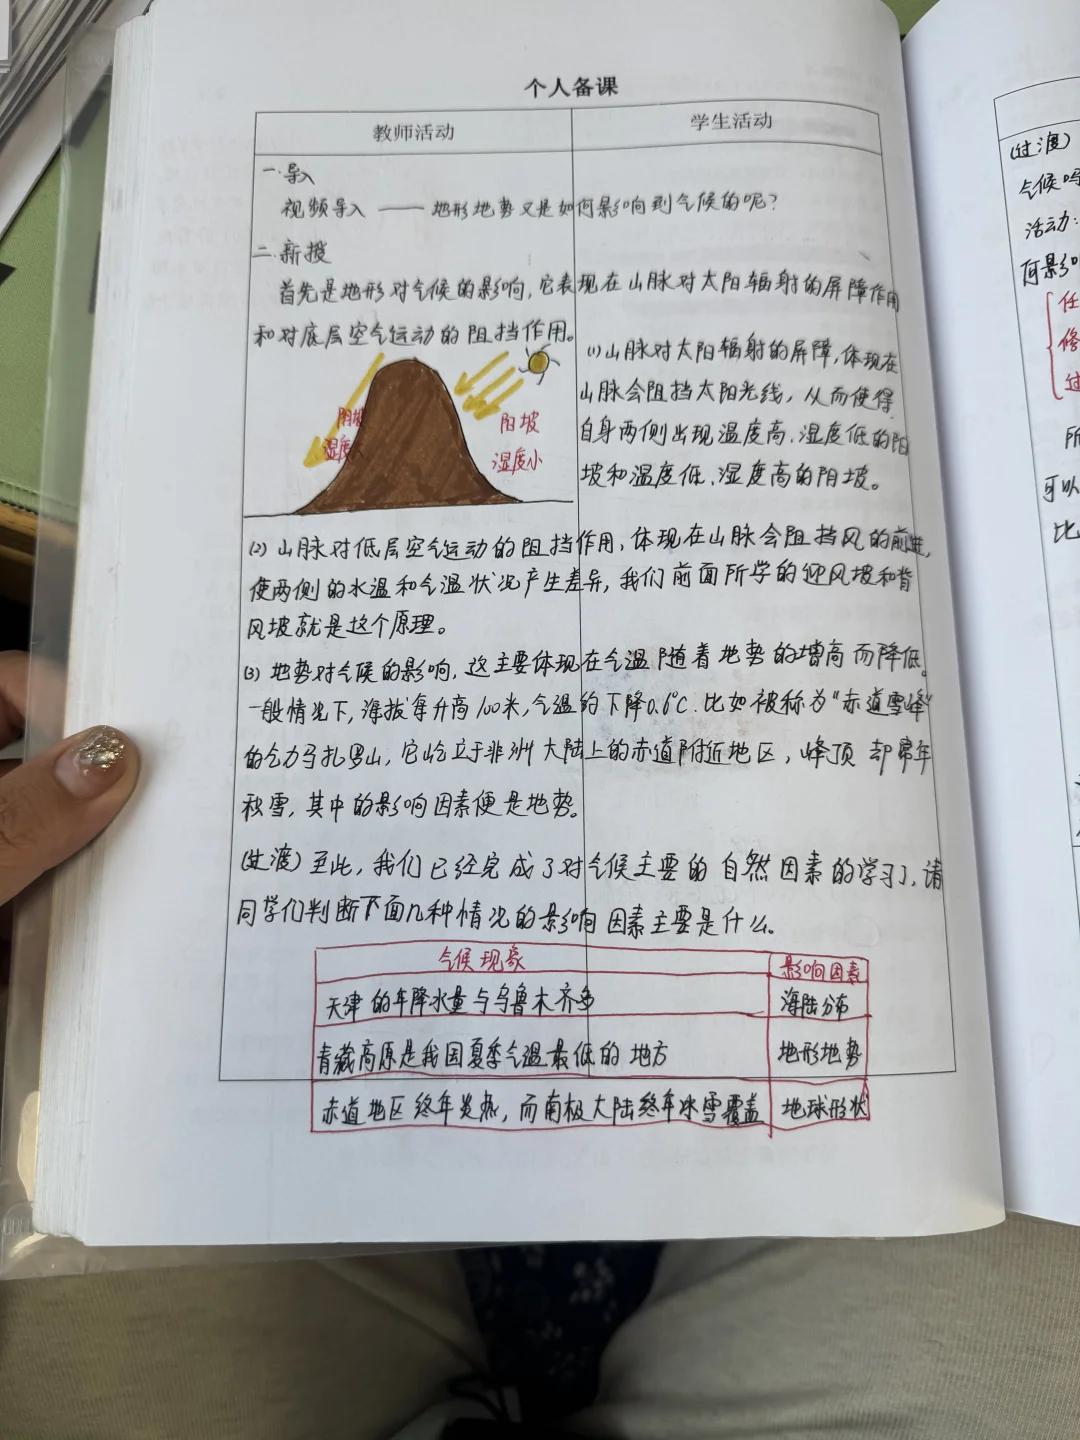 个人备课
教师活动
学生活动
一.导入
视频导入 —— 地形地势又是如何影响到气候的呢?
二.新授
首先是地形对气候的影响,它表现在山脉对太阳辐射的屏障作用
和对底层空气运动的阻挡作用。
阴坡
湿度大
阳坡
湿度小
(1)山脉对太阳辐射的屏障,体现在
山脉会阻挡太阳光线,从而使得
自身两侧出现温度高、湿度低的阳
坡和温度低、湿度高的阴坡。
(2)山脉对低层空气运动的阻挡作用,体现在山脉会阻挡风的前进,
使两侧的水温和气温状况产生差异,我们前面所学的迎风坡和背
风坡就是这个原理。
(3)地势对气候的影响,这主要体现在气温随着地势的增高而降低。
一般情况下,海拔每升高100米,气温约下降0.6℃.比如被称为“赤道雪峰”
的乞力马扎罗山,它屹立于非洲大陆上的赤道附近地区,峰顶却常年
积雪,其中的影响因素便是地势。
(过渡)至此,我们已经完成了对气候主要的自然因素的学习了,请
同学们判断下面几种情况的影响因素主要是什么。
气候现象 影响因素
天津的年降水量与乌鲁木齐多 海陆分布
青藏高原是我国夏季气温最低的地方 地形地势
赤道地区终年炎热,而南极大陆终年冰雪覆盖 地球形状
(过渡)
气候吗
活动:
何影响
任
修
过
所
可以
比